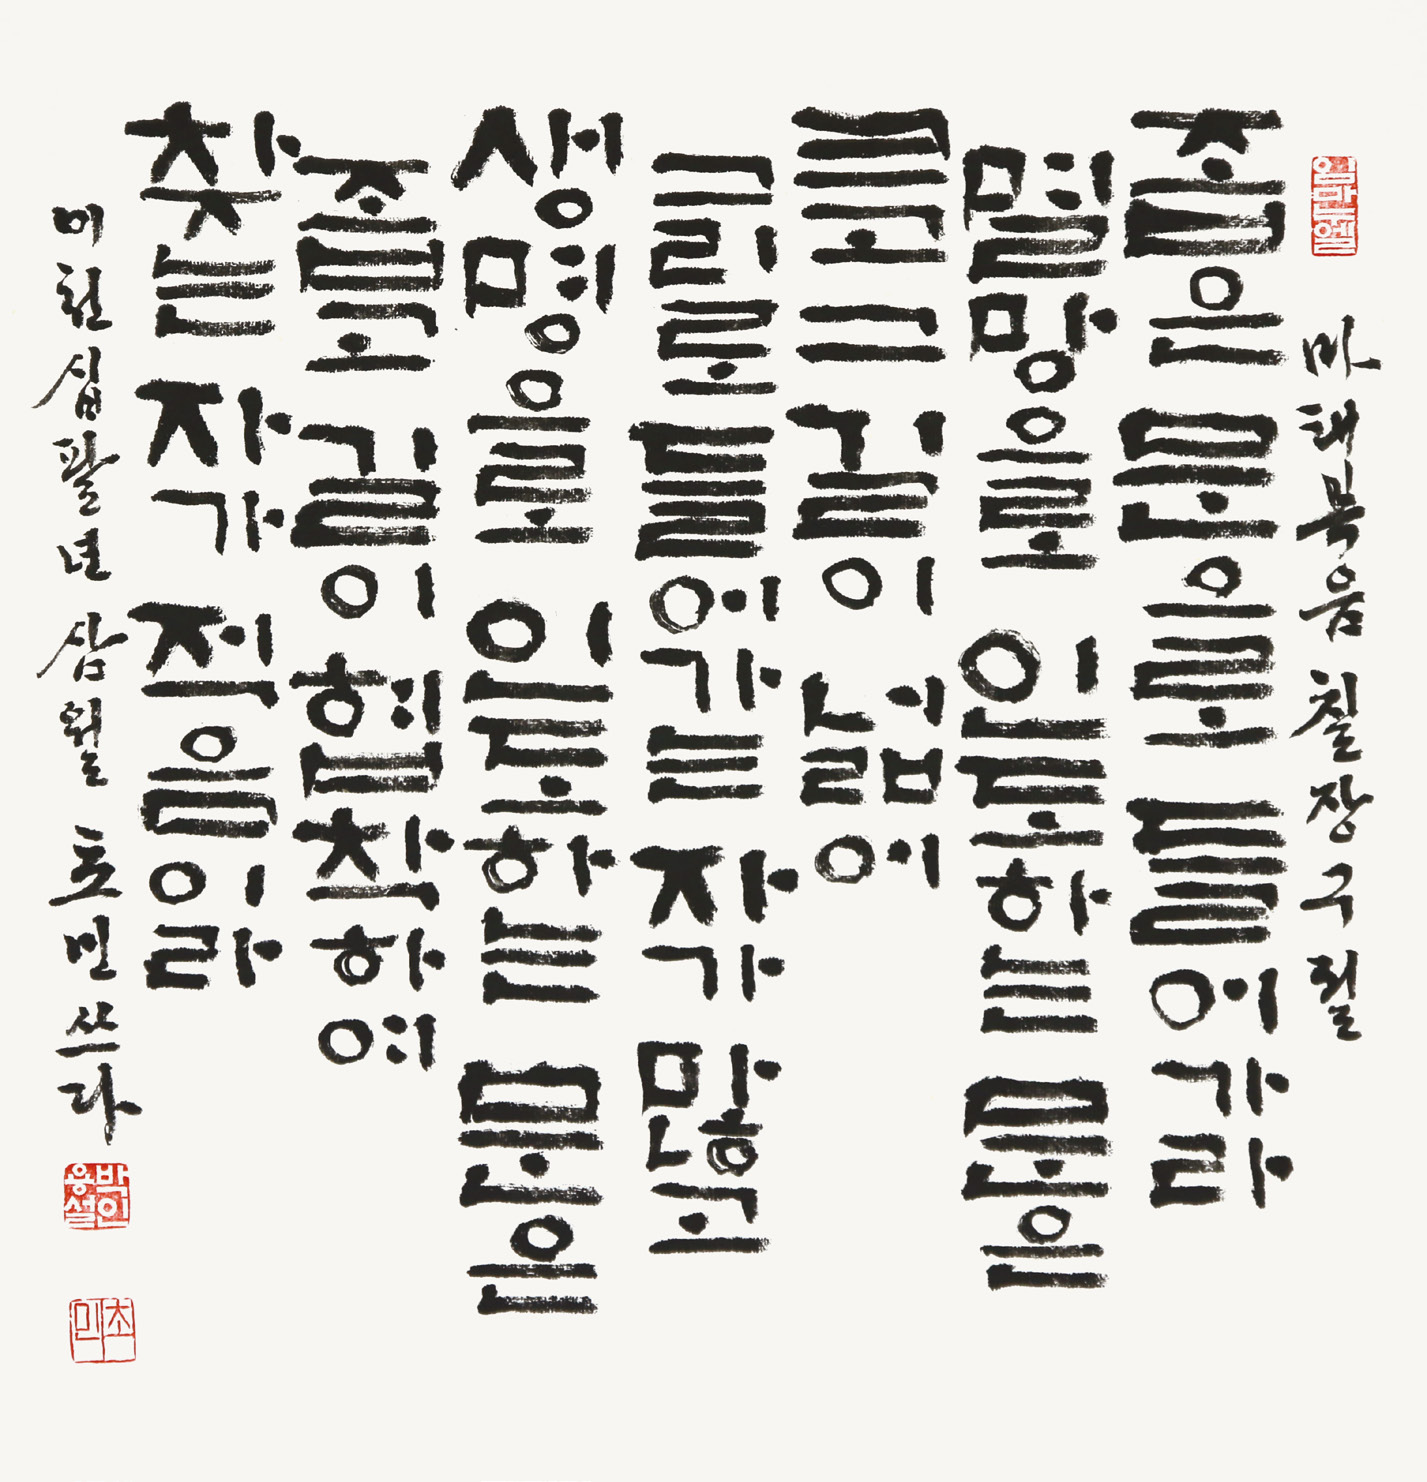 마태복음 칠장 구절
좁은 문으로 들어가라
멸망으로 인도하는 문은
크고 그 길이 넓어
그리로 들어가는 자가 많고
생명으로 인도하는 문은
좁고 길이 협착하여
찾는 자가 적음이라
이천십팔년 삼월 초민 쓰다
박인용설
초민